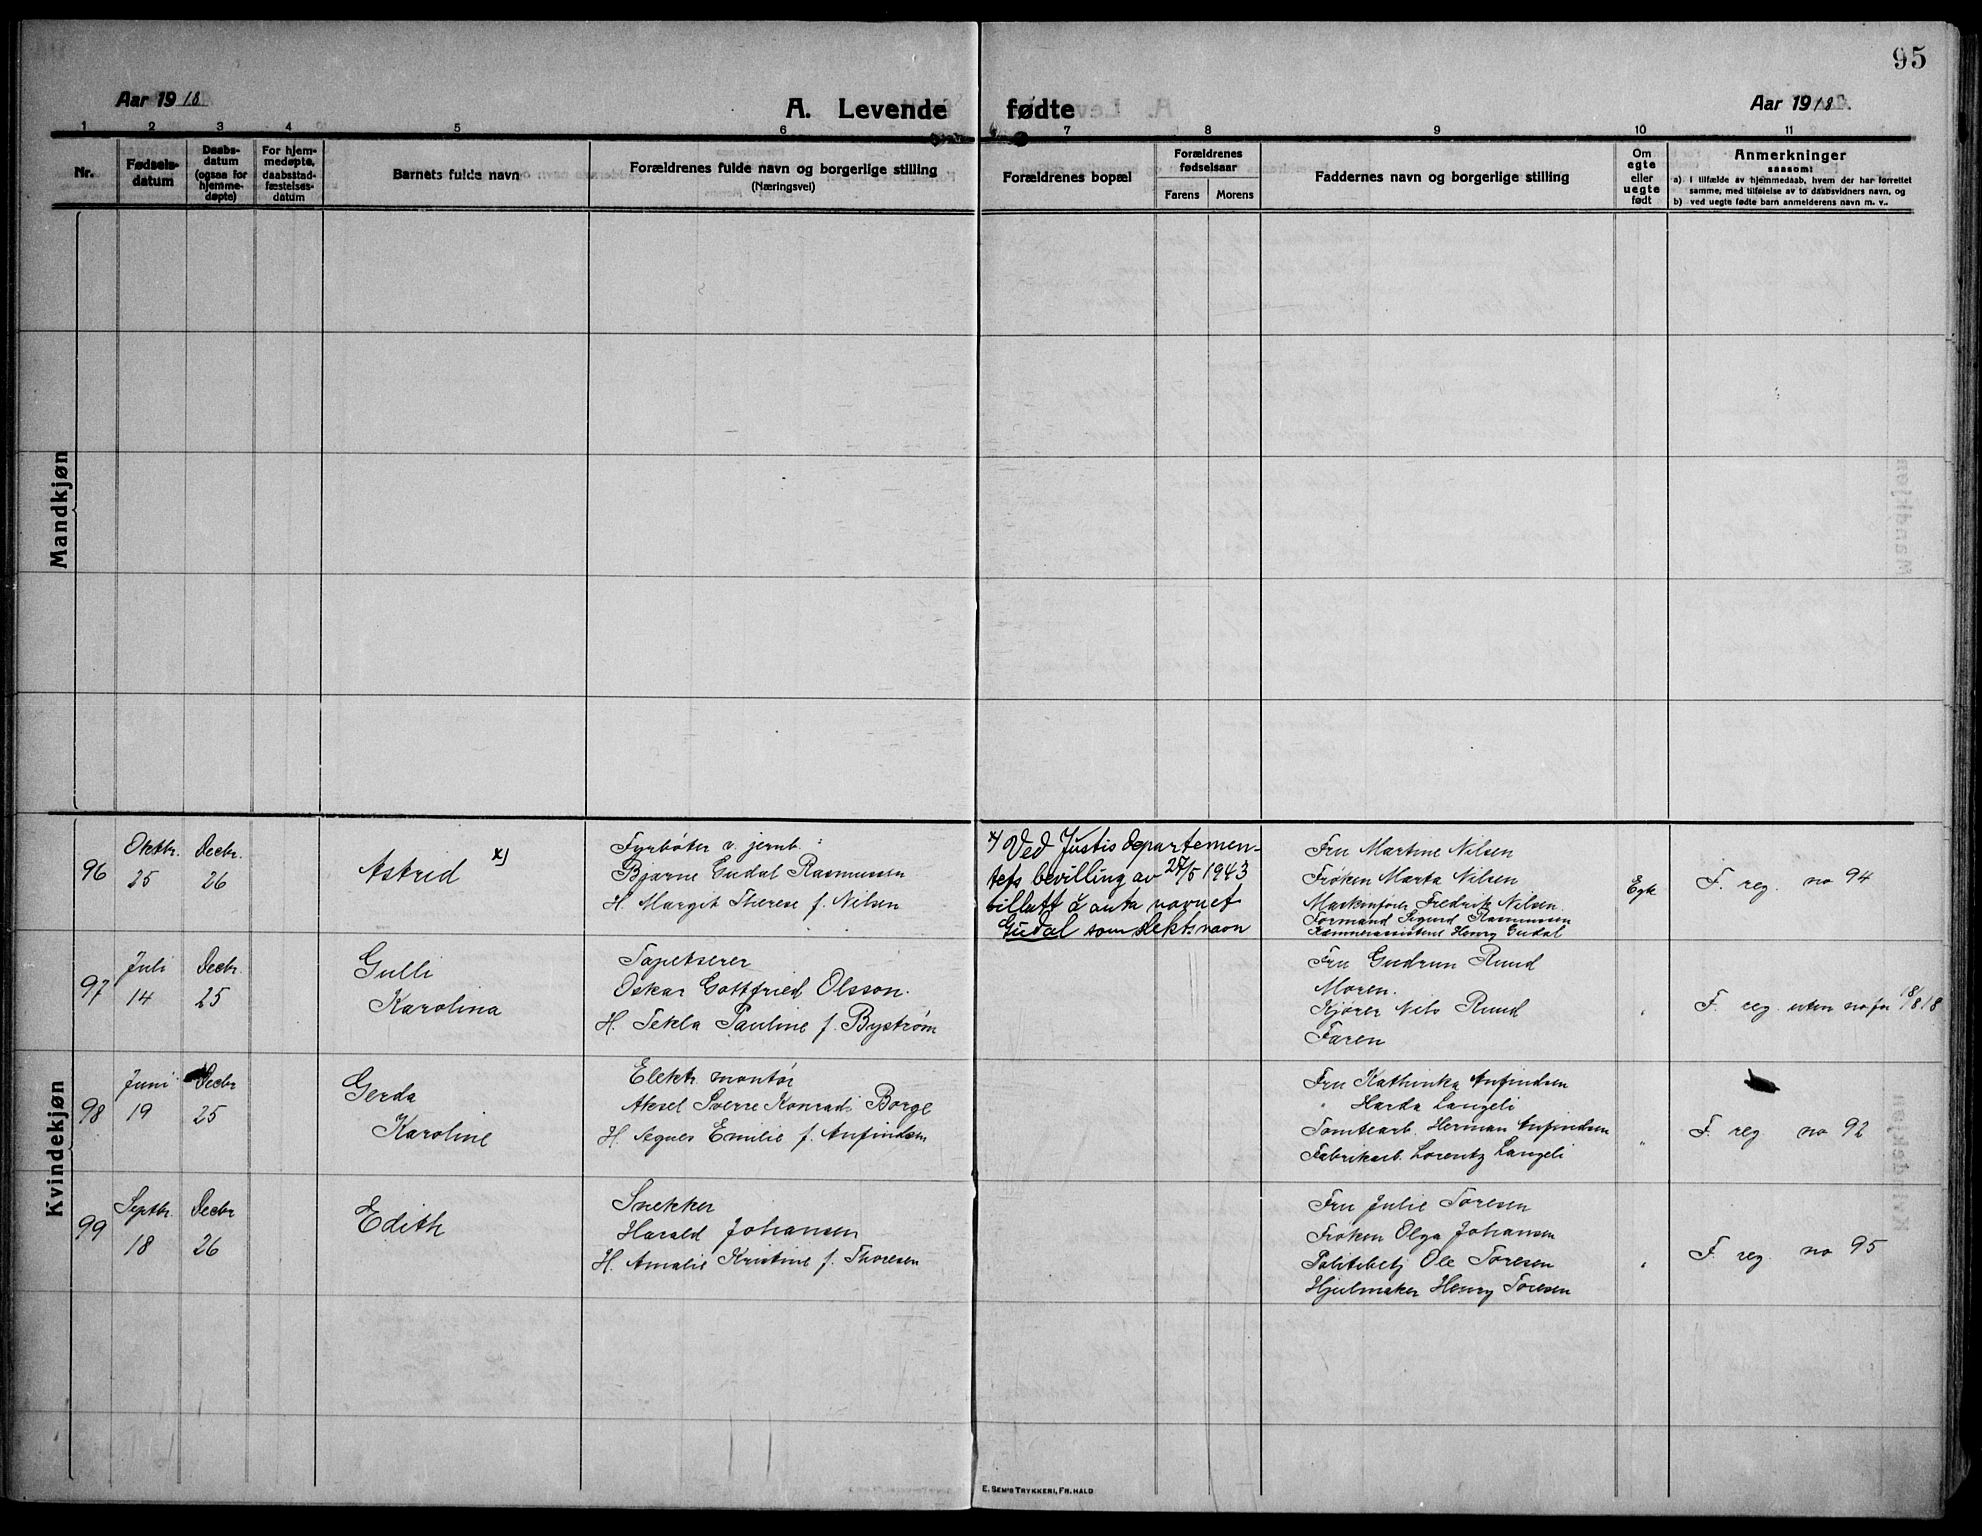 95
Aar 1918
A. Levende fødte
Aar 1918.
1 2 3 4 5 6 7 8 9 10 11
Nr.
Fødsels-
datum
Daabs-
datum
(ogsaa for
hjemme-
døpte)
For hjem-
medøpte,
daabsstad-
fæstelses-
datum
Barnets fulde navn
Forældrenes fulde navn og borgerlige stilling
(Næringsvei)
Forældrenes bopæl
Forældrenes
fødselsaar
Farens Morens
Faddernes navn og borgerlige stilling
Om
egte
eller
uegte
født
Anmerkninger
saasom:
a) I tilfælde av hjemmedaab, hvem der har forrettet
samme, med tilføielse av to daabsvidners navn, og
b) ved uegte fødte barn anmelderens navn m. v..
Mandkjøn
Kvindekjøn
96
Oktbr.
25
Decbr.
26
Astrid x)
Fyrbøter v. jernb.
Bjarne Gudal Rasmussen
H. Margit Therese f. Nilsen
x) Ved Justisdepartemen-
tets bevilling av 27/5 1943
tillatt å anta navnet
Gudal som slektsnavn
Fru Martine Nilsen
Frøken Marta Nilsen
Fredrik Nilsen.
Formand Sigurd Rasmussen
Kæmnerassistent Henry Gudal
Egte
F. reg. no 94
97
Juli
14
Decbr.
25
Gulli
Karolina
Tapetserer
Oskar Gottfried Olsson.
H. Tekla Pauline f. Byström
Fru Gudrun Ruud
Moren.
Kjører Nils Ruud
Faren
"
F. reg. uten no før 18/8 18
98
Juni
19
Decbr
25
Gerda
Karoline
Elektr. montør
Aksel Sverre Konrad Borge
H. Agnes Emilie f. Anfindsen
Fru Kathinka Anfindsen
" Harda Langeli
Tomtearb. Herman Anfindsen
Fabrikarb. Lorentz Langeli
"
F. reg no 92
99
Septbr.
18
Decbr
26
Edith
Snekker
Harald Johansen
H. Amalie Kristine f. Thoresen
Fru Julie Toresen
Frøken Olga Johansen
Politibetj Ole Toresen
Hjulmaker Henry Toresen
"
F. reg. no 95
E. SEM'S TRYKKERI, FR.HALD